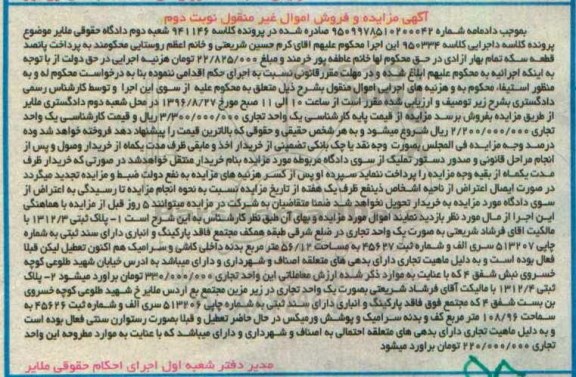 آگهی مزایده و فروش اموال غیر منقول نوبت دوم
بموجب دادنامه شماره ۹۵۰۹۹۷۸۵۱۰۲۰۰۰۴۲ صادره شده در پرونده کلاسه ۹۴۱۱۴۶ شعبه دوم دادگاه حقوقی ملایر موضوع
پرونده کلاسه داجرایی کلاسه ۹۵۰۳۳۴ این اجرا محکوم علیهم آقای کرم حسین شریعتی و خانم اعظم روستایی محکومند به پرداخت پانصد
قطعه سکه تمام بهار آزادی در حق محکوم لها خانم عاطفه پور خرمند و مبلغ ۲۲/۸۲۵/۰۰۰ تومان هزینه اجرایی در حق دولت از با توجه
به اینکه اجرائیه به محکوم علیهم ابلاغ شده و در مهلت مقرر قانونی نسبت به اجرای حکم اقدامی ننموده بنا به درخواست محکوم له و به
منظور استیفاء محکوم به و هزینه های اجرایی اموال منقول بشرح ذیل متعلق به محکوم علیه از سوی این اجرا و توسط کارشناس رسمی
دادگستری بشرح زیر توصیف و ارزیابی شده مقرر است از ساعت ۱۰ الی ۱۱ صبح مورخ ۱۳۹۶/۸/۲۷ در محل شعبه دوم دادگستری ملایر
از طریق مزایده بفروش برسد مزایده از قیمت پایه کارشناسی یک واحد تجاری ۳/۳۰۰/۰۰۰/۰۰۰ ریال و قیمت کارشناسی یک واحد
تجاری ۲/۲۰۰/۰۰۰/۰۰۰ ریال شروع میشود و به هر شخص حقیقی و حقوقی که بالاترین قیمت را پیشنهاد دهد فروخته خواهد شد وده
درصد وجه مزایده فی المجلس بصورت وجه نقد یا چک بانکی تضمینی از خریدار اخذ و مابقی ظرف مدت یکماه از خریدار وصول و پس از
انجام مراحل قانونی و صدور دستور تملیک از سوی دادگاه مربوطه مورد مزایده بنام خریدار منتقل خواهدشد در صورتی که خریدار ظرف
مدت یکماه از بقیه وجه مزایده را پرداخت ننماید سپرده او پس از کسر هزینه های مزایده به نفع دولت ضبط و مزایده تجدید میگردد
در صورت ایصال اعتراض از ناحیه اشخاص ذینفع ظرف یک هفته از تاریخ مزایده نسبت به نحوه انجام مزایده تا رسیدگی به اعتراض از
سوی دادگاه مورد مزایده به خریدار تحویل نخواهد شد ضمنا متقاضیان به شرکت در مزایده میتوانند ۵ روز قبل از مزایده با هماهنگی
این اجرا از مال مورد نظر بازدید نمایند اموال مورد مزایده و بهای آن طبق نظر کارشناس به این شرح است ۱- پلاک ثبتی ۱۳۱۲/۳ با
مالکیت آقای فرشاد شریعتی به صورت یک واحد تجاری در ضلع شرقی طبقه همکف مجتمع فاقد پارکینگ و انباری دارای سند ثبتی به شماره
چاپی ۵۱۳۲۰۷ سری الف و شماره ثبت ۴۵۶۲۷ به مساحت ۵۶/۱۲ متر مربع بدنه داخلی کاشی و سرامیک هم اکنون تعطیل لیکن قبلا
فعال بوده است و به دلیل ماهیت تجاری دارای بدهی های متعلقه اصناف و شهرداری و دارای میباشد به ادرس خیابان شهید طلوعی کوچه
خسروی نبش شفق ۴ که با عنایت به موارد ذکر شده ارزش معاملاتی این واحد تجاری ۳۳۰/۰۰۰/۰۰۰ تومان براورد میشود ۲- پلاک
ثبتی ۱۳۱۲/۴ با مالکیت آقای فرشاد شریعتی بصورت یک واحد تجاری در زیر زمین مجتمع به ادرس ملایر خ شهید طلوعی کوچه خسروی
بن بست شفق ۴ که مجتمع فوق فاقد پارکینگ و انباری دارای سند ثبتی به شماره چاپی ۵۱۳۲۰۶ سری الف و شماره ثبت ۴۵۶۲۶ به
مساحت ۱۰۸/۹۶ متر مربع کف و بدنه سرامیک و پوشش ورمیکس در حال حاضر تعطیل و قبلا بصورت رستوارن سنتی فعال بوده است
و به دلیل ماهیت تجاری دارای بدهی های متعلقه احتمالی به اصناف و شهرداری و دارای میباشد که با عنایت به موارد مطروحه این واحد
تجاری ۲۲۰/۰۰۰/۰۰۰ تومان براورد میشود
مدیر دفتر شعبه اول اجرای احکام حقوقی ملایر